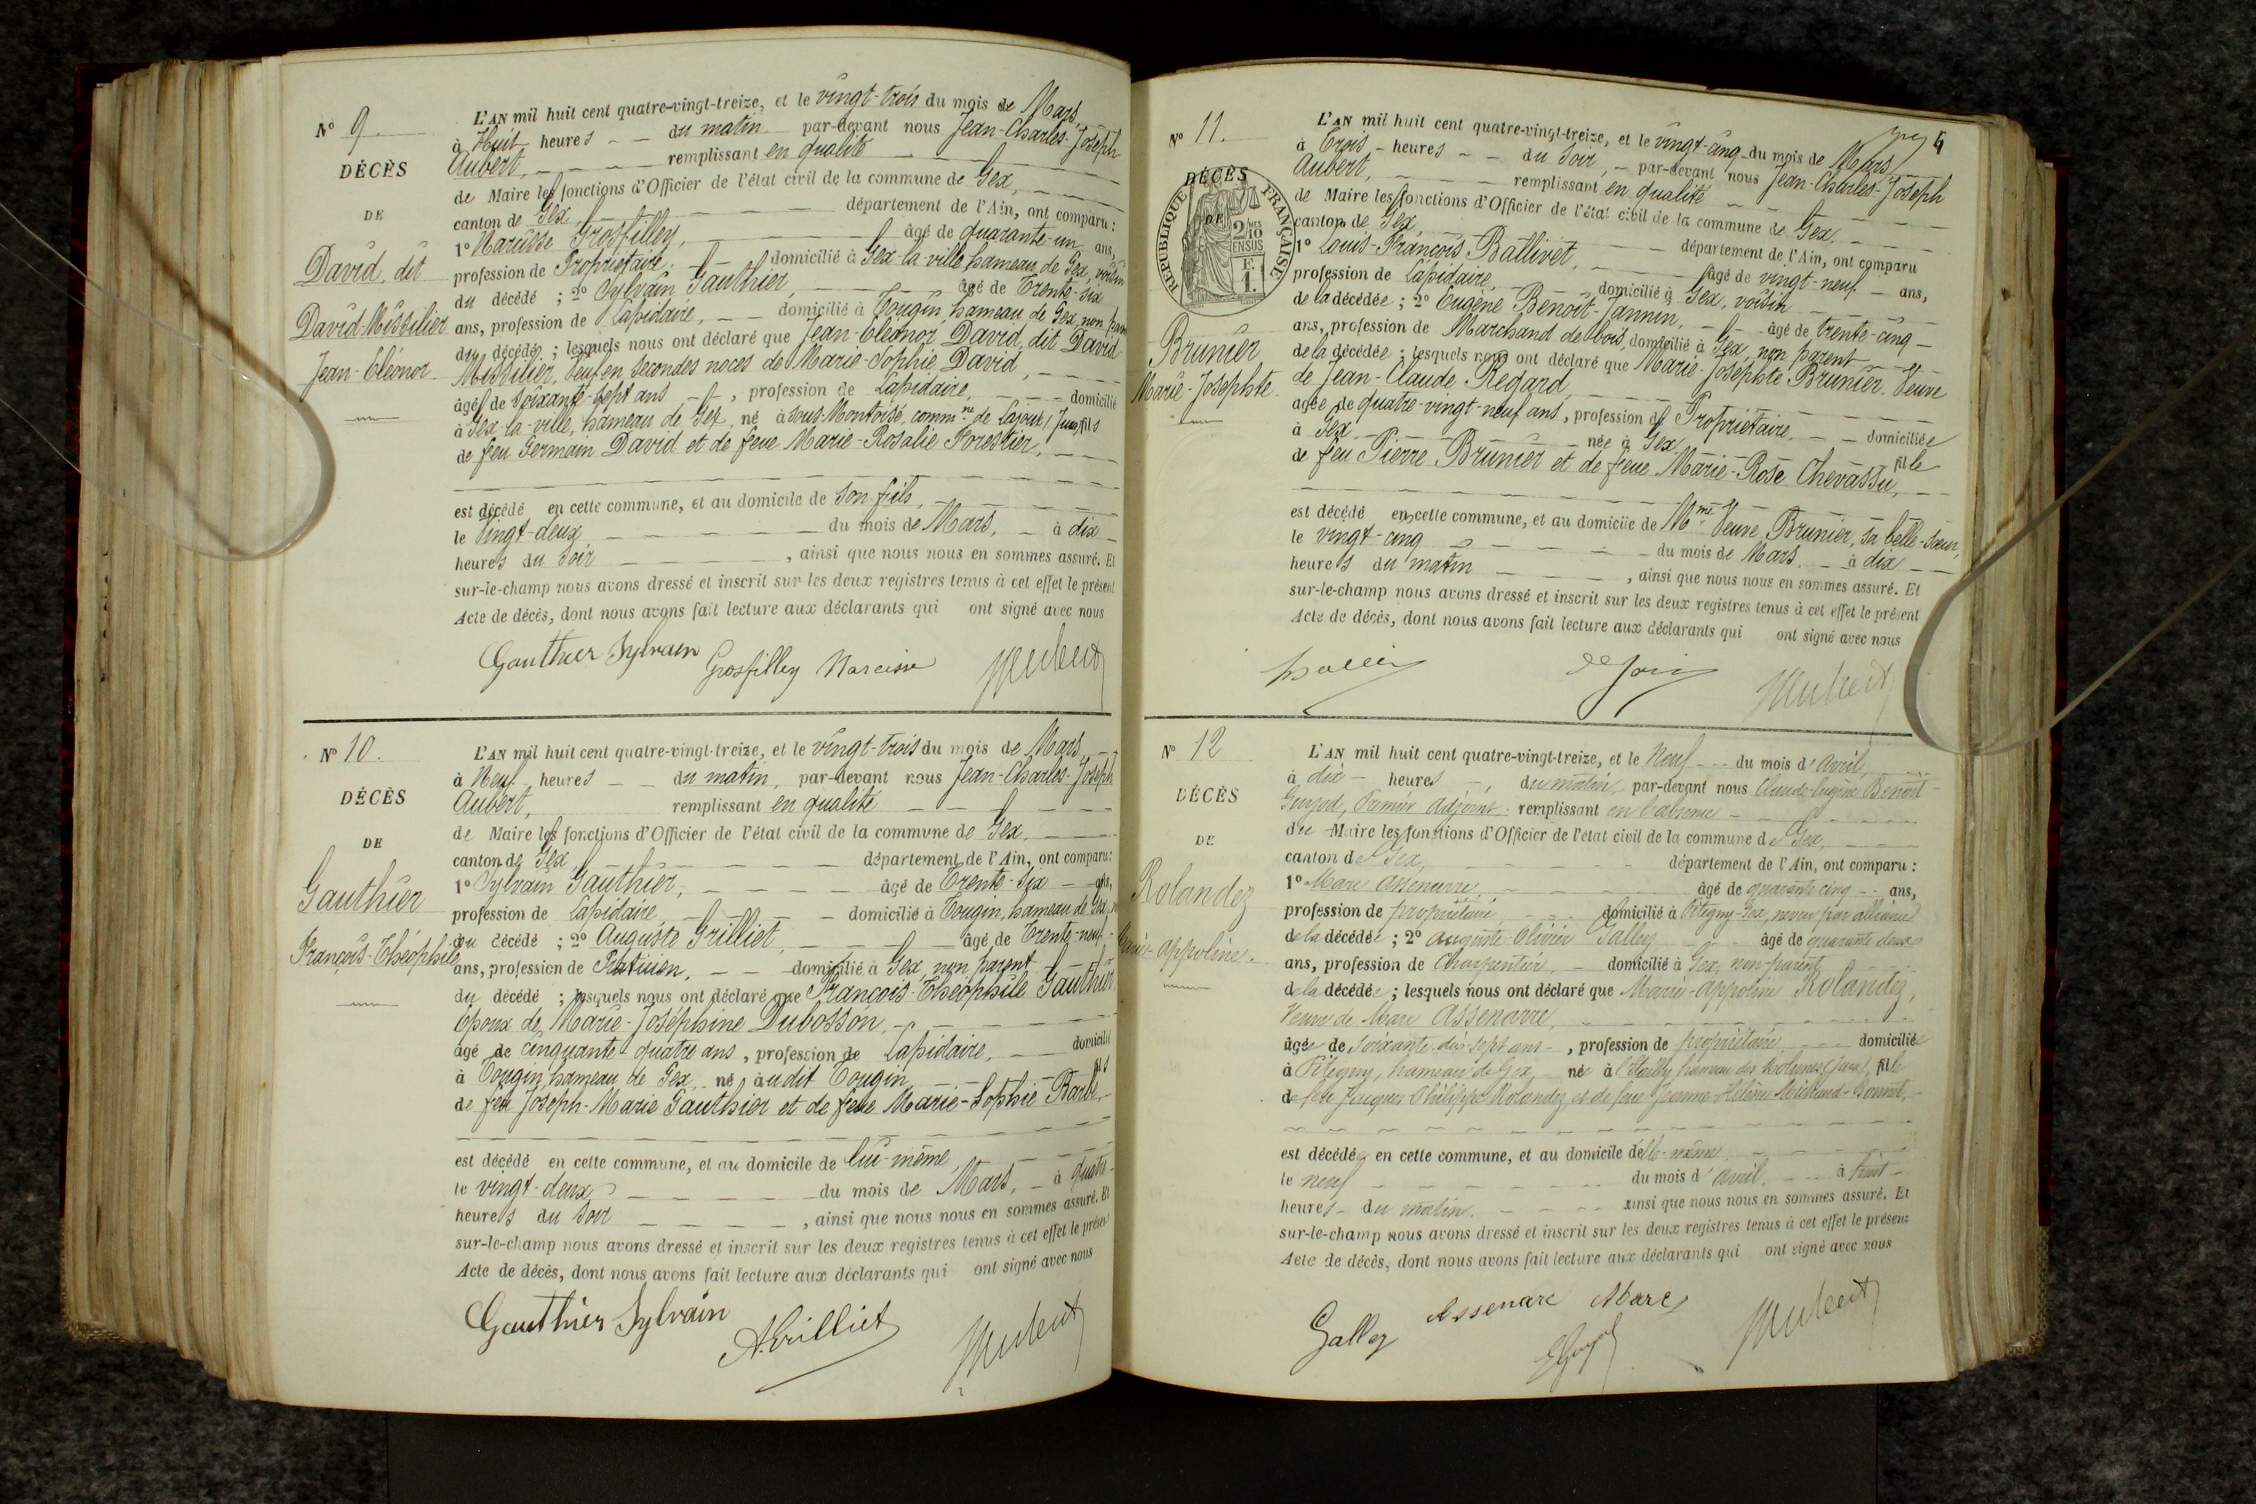 N° 9.
DÉCÈS
DE
David, dit
David-Missilier
Jean-Eléonor
L'AN mil huit cent quatre-vingt-treize, et le vingt-trois du mois de Mars,
à Huit heures du matin par-devant nous Jean-Charles-Joseph
Aubert, remplissant en qualité
de Maire les fonctions d'Officier de l'état civil de la commune de Gex,
canton de Gex, département de l'Ain, ont comparu :
1° Narcisse Grosfilley, âgé de quarante-un ans,
profession de Propriétaire, domicilié à Gex-la-ville, hameau de Gex, voisin
du décédé ; 2° Sylvain Gauthier, âgé de Trente-six
ans, profession de Lapidaire, domicilié à Tougin, hameau de Gex, non parent
du décédé ; lesquels nous ont déclaré que Jean-Eléonor David, dit David
Missilier, Veuf en secondes noces de Marie-Sophie David,
âgé de soixante-sept ans, profession de Lapidaire, domicilié
à Gex-la-ville, hameau de Gex, né à sous-Montoisé, commne de Lajoux (Jura) fils
de feu Germain David et de feue Marie-Rosalie Forestier,
est décédé en cette commune, et au domicile de son fils,
le vingt-deux du mois de Mars, à dix
heures du soir, ainsi que nous nous en sommes assuré. Et
sur-le-champ nous avons dressé et inscrit sur les deux registres tenus à cet effet le présent
Acte de décès, dont nous avons fait lecture aux déclarants qui ont signé avec nous
Gauthier Sylvain Grosfilley Narcisse JAubert
N° 10.
DÉCÈS
DE
Gauthier
François-Théophile
L'AN mil huit cent quatre-vingt-treize, et le vingt-trois du mois de Mars
à Neuf heures du matin, par-devant nous Jean-Charles-Joseph
Aubert, remplissant en qualité
de Maire les fonctions d'Officier de l'état civil de la commune de Gex
canton de Gex département de l'Ain, ont comparu :
1° Sylvain Gauthier, âgé de Trente-six ans,
profession de Lapidaire, domicilié à Tougin, hameau de Gex,
du décédé ; 2° Auguste Grilliet, âgé de Trente-neuf
ans, profession de Praticien, domicilié à Gex, non parent
du décédé ; lesquels nous ont déclaré que François-Théophile Gauthier
Epoux de Marie-Joséphine Dubosson,
âgé de cinquante-quatre ans, profession de Lapidaire, domicilié
à Tougin, hameau de Gex, né audit Tougin, fils
de feu Joseph-Marie Gauthier et de feue Marie-Sophie Barbe
est décédé en cette commune, et au domicile de lui-même,
le vingt-deux du mois de Mars, à quatre
heures du soir, ainsi que nous nous en sommes assuré. Et
sur-le-champ nous avons dressé et inscrit sur les deux registres tenus à cet effet le présent
Acte de décès, dont nous avons fait lecture aux déclarants qui ont signé avec nous
Gauthier Sylvain A. Grilliet JAubert
4
N° 11.
DÉCÈS
DE
RÉPUBLIQUE FRANÇAISE
2/10
EN SUS
E
1.
Brunier
Marie-Josephte
L'AN mil huit cent quatre-vingt-treize, et le vingt-cinq du mois de Mars
à Trois heures du soir, par-devant nous Jean-Charles-Joseph
Aubert, remplissant en qualité
de Maire les fonctions d'Officier de l'état civil de la commune de Gex
canton de Gex, département de l'Ain, ont comparu
1° Louis-François Ballivet, âgé de vingt-neuf ans,
profession de Lapidaire, domicilié à Gex, voisin
de la décédée ; 2° Eugène Benoît-Jannin, âgé de trente-cinq
ans, profession de Marchand de bois, domicilié à Gex, non parent
de la décédée ; lesquels nous ont déclaré que Marie-Josephte Brunier. Veuve
de Jean-Claude Regard,
agée de quatre-vingt-neuf ans, profession de Propriétaire domiciliée
à Gex née à Gex, fille
de feu Pierre Brunier et de feue Marie-Rose Chevassu,
est décédé en cette commune, et au domicile de Mme Veuve Brunier, sa belle-sœur,
le vingt-cinq du mois de Mars à dix
heures du matin, ainsi que nous nous en sommes assuré. Et
sur-le-champ nous avons dressé et inscrit sur les deux registres tenus à cet effet le présent
Acte de décès, dont nous avons fait lecture aux déclarants qui ont signé avec nous
JAubert
N° 12
DÉCÈS
DE
Rolandez
Marie-Appoline.
L'AN mil huit cent quatre-vingt-treize, et le Neuf du mois d'Avril,
à dix heures du matin, par-devant nous Claude-Eugène Benoît
Guyod, Premier Adjoint remplissant en l'absence
du Maire les fonctions d'Officier de l'état civil de la commune de Gex,
canton de Gex, département de l'Ain, ont comparu :
1° Marc Assenarre, âgé de quarante cinq ans,
profession de propriétaire, domicilié à Pitegny-Gex, neveu par alliance
de la décédée ; 2° Auguste Olivier Galley âgé de quarante deux
ans, profession de Charpentier domicilié à Gex, non-parent
de la décédée ; lesquels nous ont déclaré que Marie-Appoline Rolandez,
Veuve de Marc Assenarre,
âgée de soixante-dix sept ans, profession de propriétaire domiciliée
à Pitegny, hameau de Gex née à hameau des Molunes (Jura), fille
de feu Jacques Philippe Rolandez et de feue Jeanne-Hélène
est décédée en cette commune, et au domicile d'elle-même
le neuf du mois d'avril, à huit
heures du matin. ainsi que nous nous en sommes assuré. Et
sur-le-champ nous avons dressé et inscrit sur les deux registres tenus à cet effet le présent
Acte de décès, dont nous avons fait lecture aux déclarants qui ont signé avec nous
Galley Assenare Marc JAubert